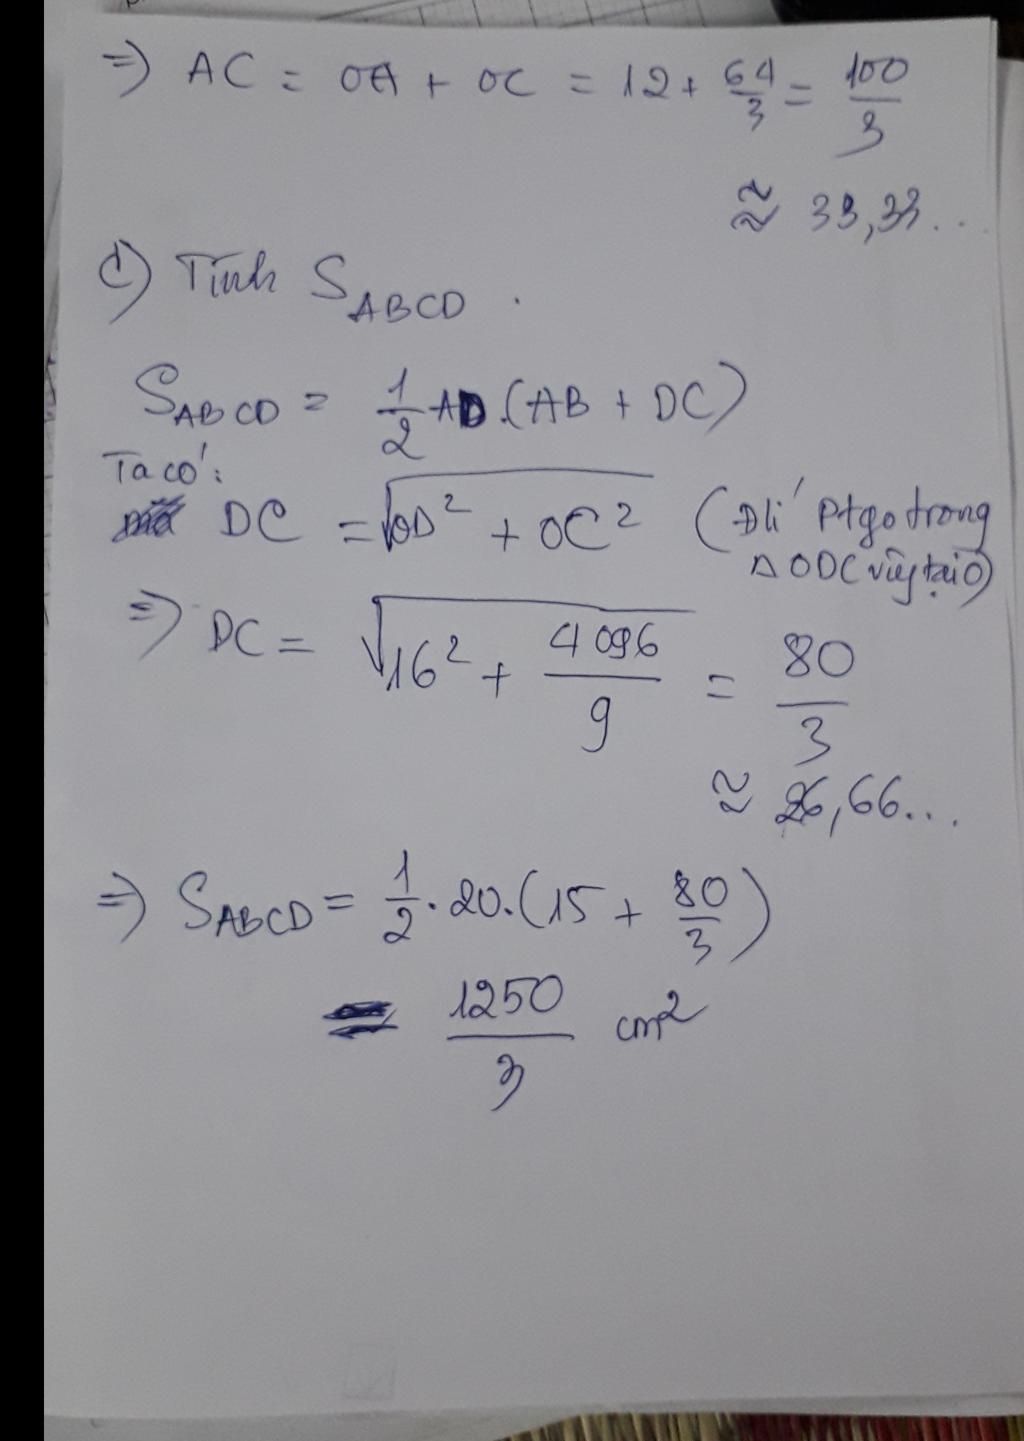 =) AC = OA + OC = 12 + 64/3 = 100/3
≈ 33,33...
c) Tính S_ABCD .
S_ABCD = 1/2 AD.(AB + DC)
Ta có:
DC = √(OD² + OC²) (Đlí Ptgo trong
Δ ODC vuông tại O)
=) DC = √(16² + 4096/9) = 80/3
≈ 26,66...
=) S_ABCD = 1/2 . 20.(15 + 80/3)
= 1250/3 cm²